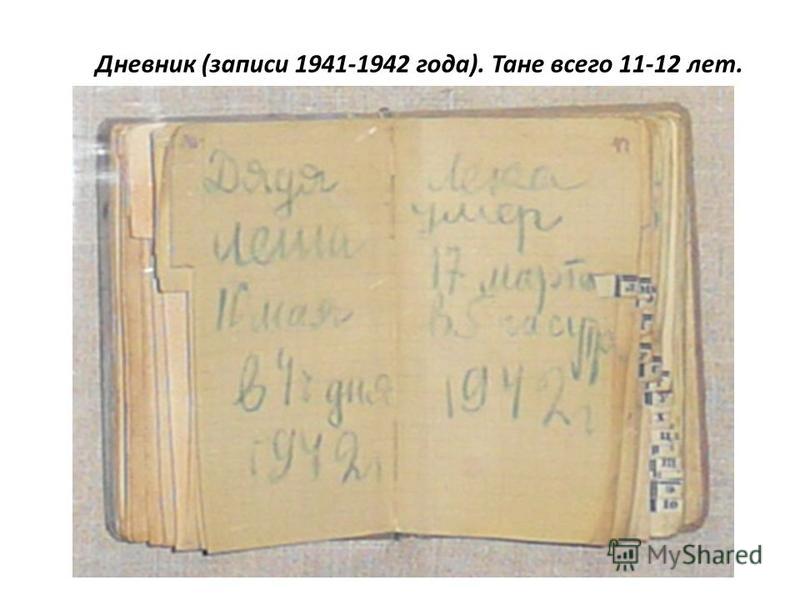 Дневник (записи 1941-1942 года). Тане всего 11-12 лет.
Дядя
Леша
10 мая
в 4ч дня
1942г
Лека
умер
17 марта
в 5 час утр
1942г
MyShared